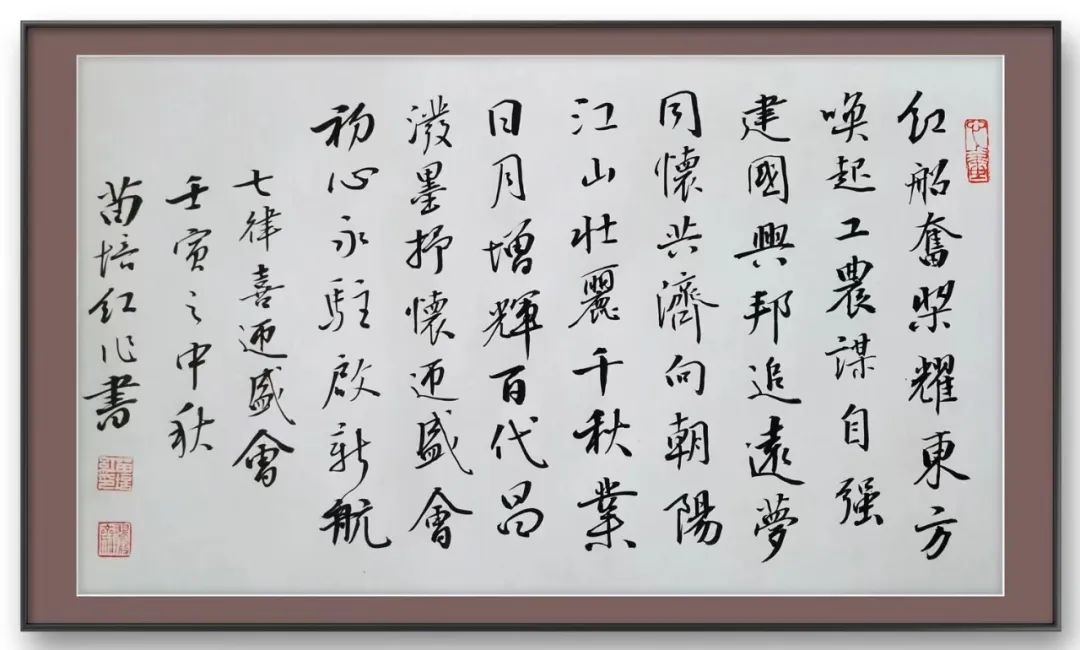 红船奮槳耀東方
唤起工農謀自强
建國興邦追遠夢
同懷共濟向朝陽
江山壯麗千秋業
日月增輝百代昌
潑墨抒懷迎盛會
初心永駐啟新航
七律喜迎盛會
壬寅之中秋
苗培红作書